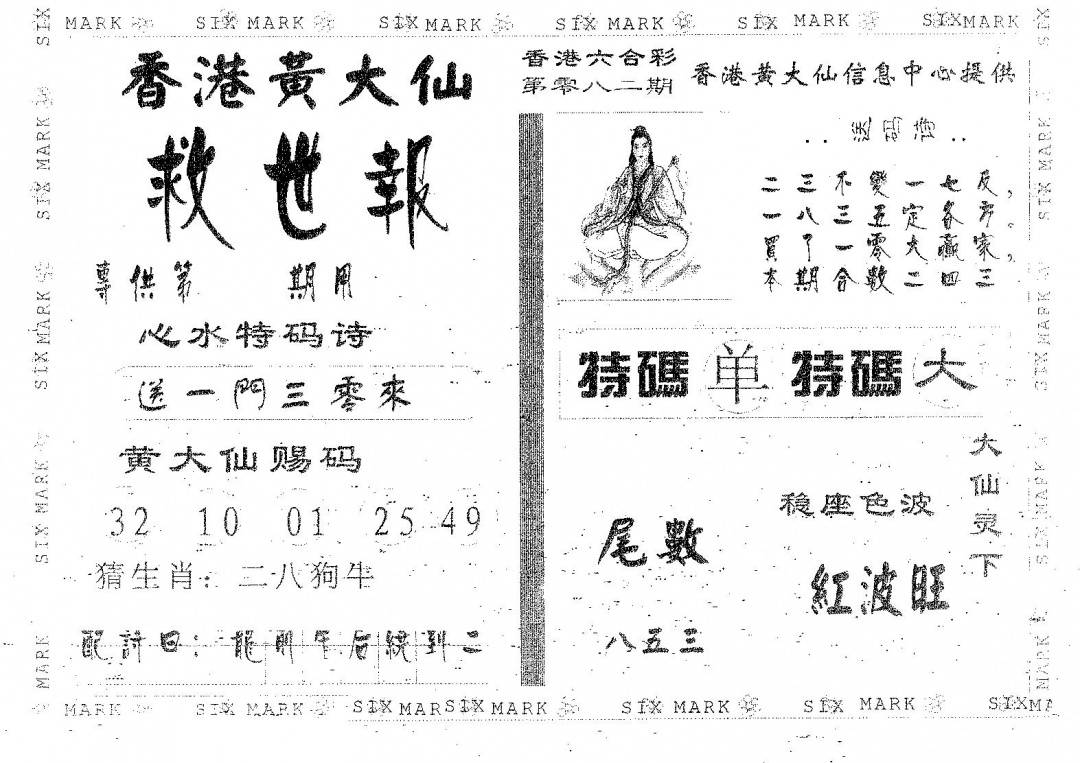 SIX MARK SIX MARK SIX MARK SIX MARK SIX MARK SIXMARK
香港黃大仙
救世報
專供第 期用
心水特码诗
送一門三零來
黄大仙赐码
32 10 01 25 49
猜生肖：二八狗牛
配詩曰：龍前午后続到二
香港六合彩
第零八二期
香港黄大仙信息中心提供
..送码诗..
二三不變一七反，
一八三五定各方。
買了一零大贏家，
本期合數二四三
特碼单 特碼大
尾數
八五三
稳座色波
紅波旺
大仙灵下
MARK SIX MARK SIX MARSIX MARK SIX MARK SIX MARK SIXMA
SIX MARK SIX MARK SIX MARK SIX MARK
SIX MARK SIX MARK SIX MARK SIX MARK